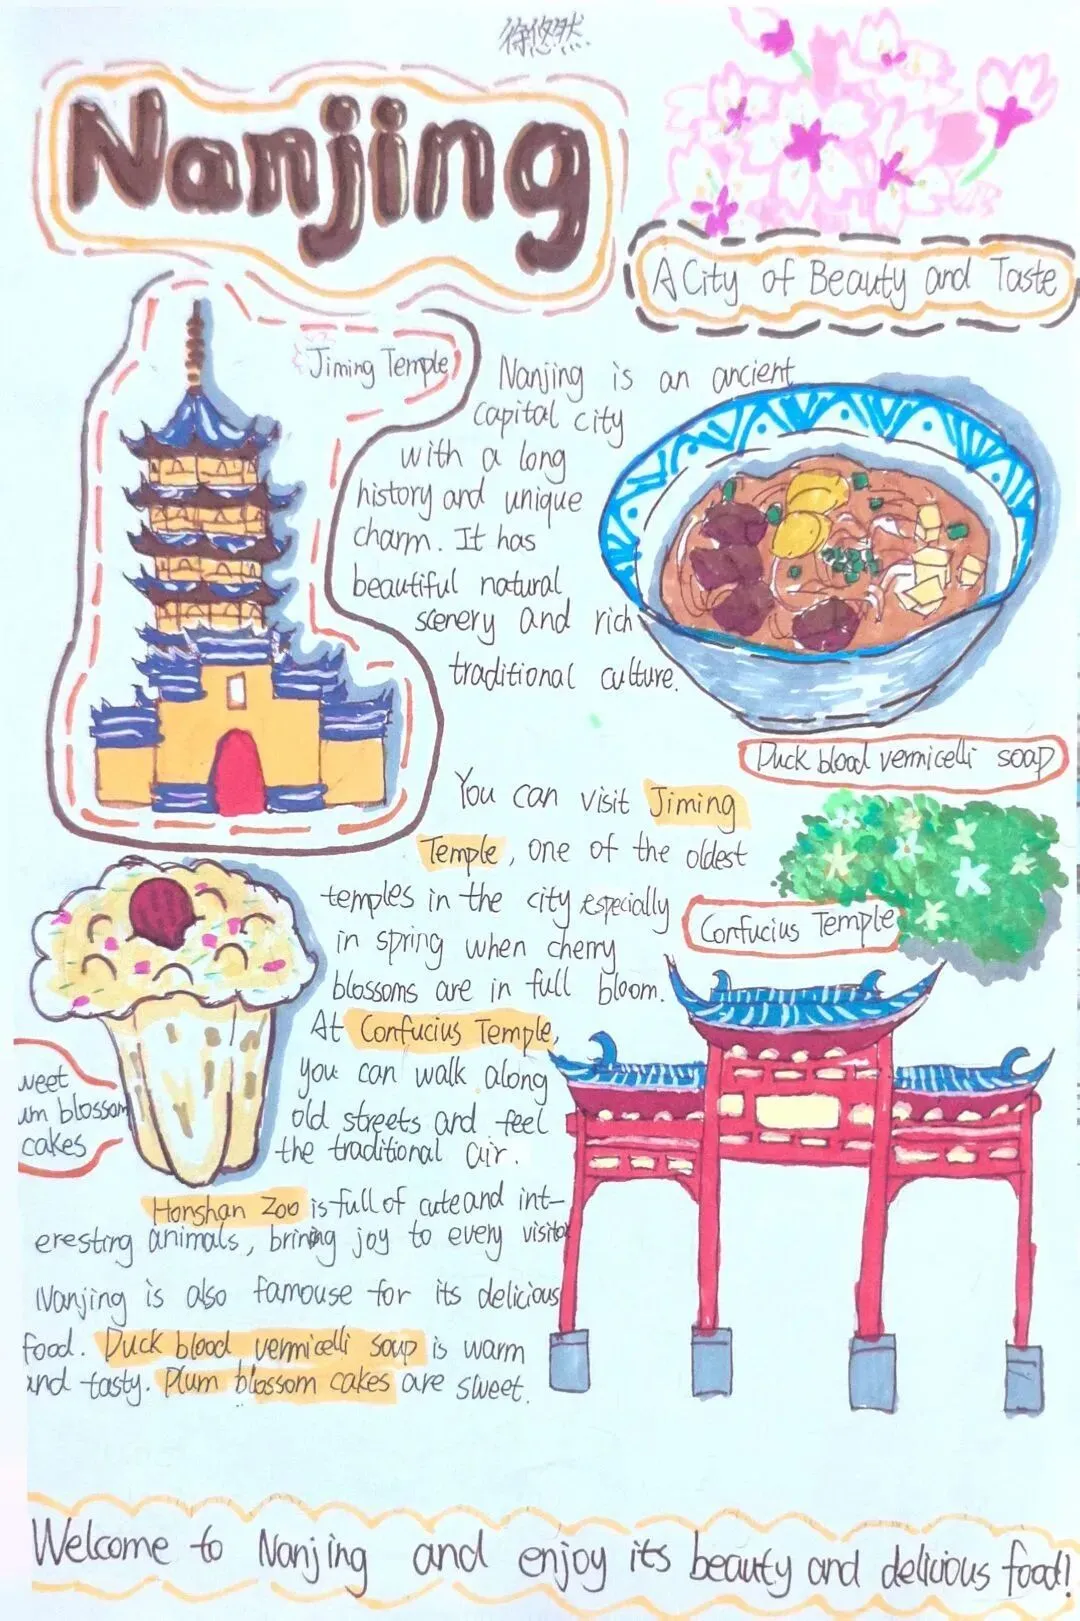 徐悠然
Nanjing
A City of Beauty and Taste
Jiming Temple
Nanjing is an ancient
capital city
with a long
history and unique
charm. It has
beautiful natural
scenery and rich
traditional culture.
Duck blood vermicelli soap
You can visit Jiming
Temple, one of the oldest
temples in the city especially
in spring when cherry
blossoms are in full bloom.
Confucius Temple
At Confucius Temple,
you can walk along
old streets and feel
the traditional air.
weet
um blossom
cakes
Honshan Zoo is full of cute and int-
eresting animals, bringing joy to every visitor
Nanjing is also famouse for its delicious
food. Duck blood vermicelli soup is warm
and tasty. Plum blossom cakes are sweet.
Welcome to Nanjing and enjoy its beauty and delicious food!